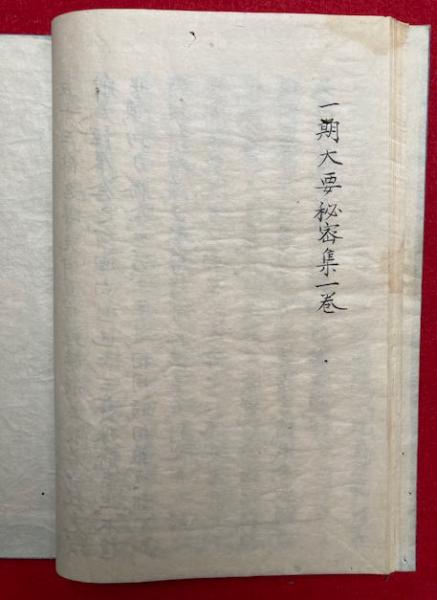 一期大要秘密集一巻